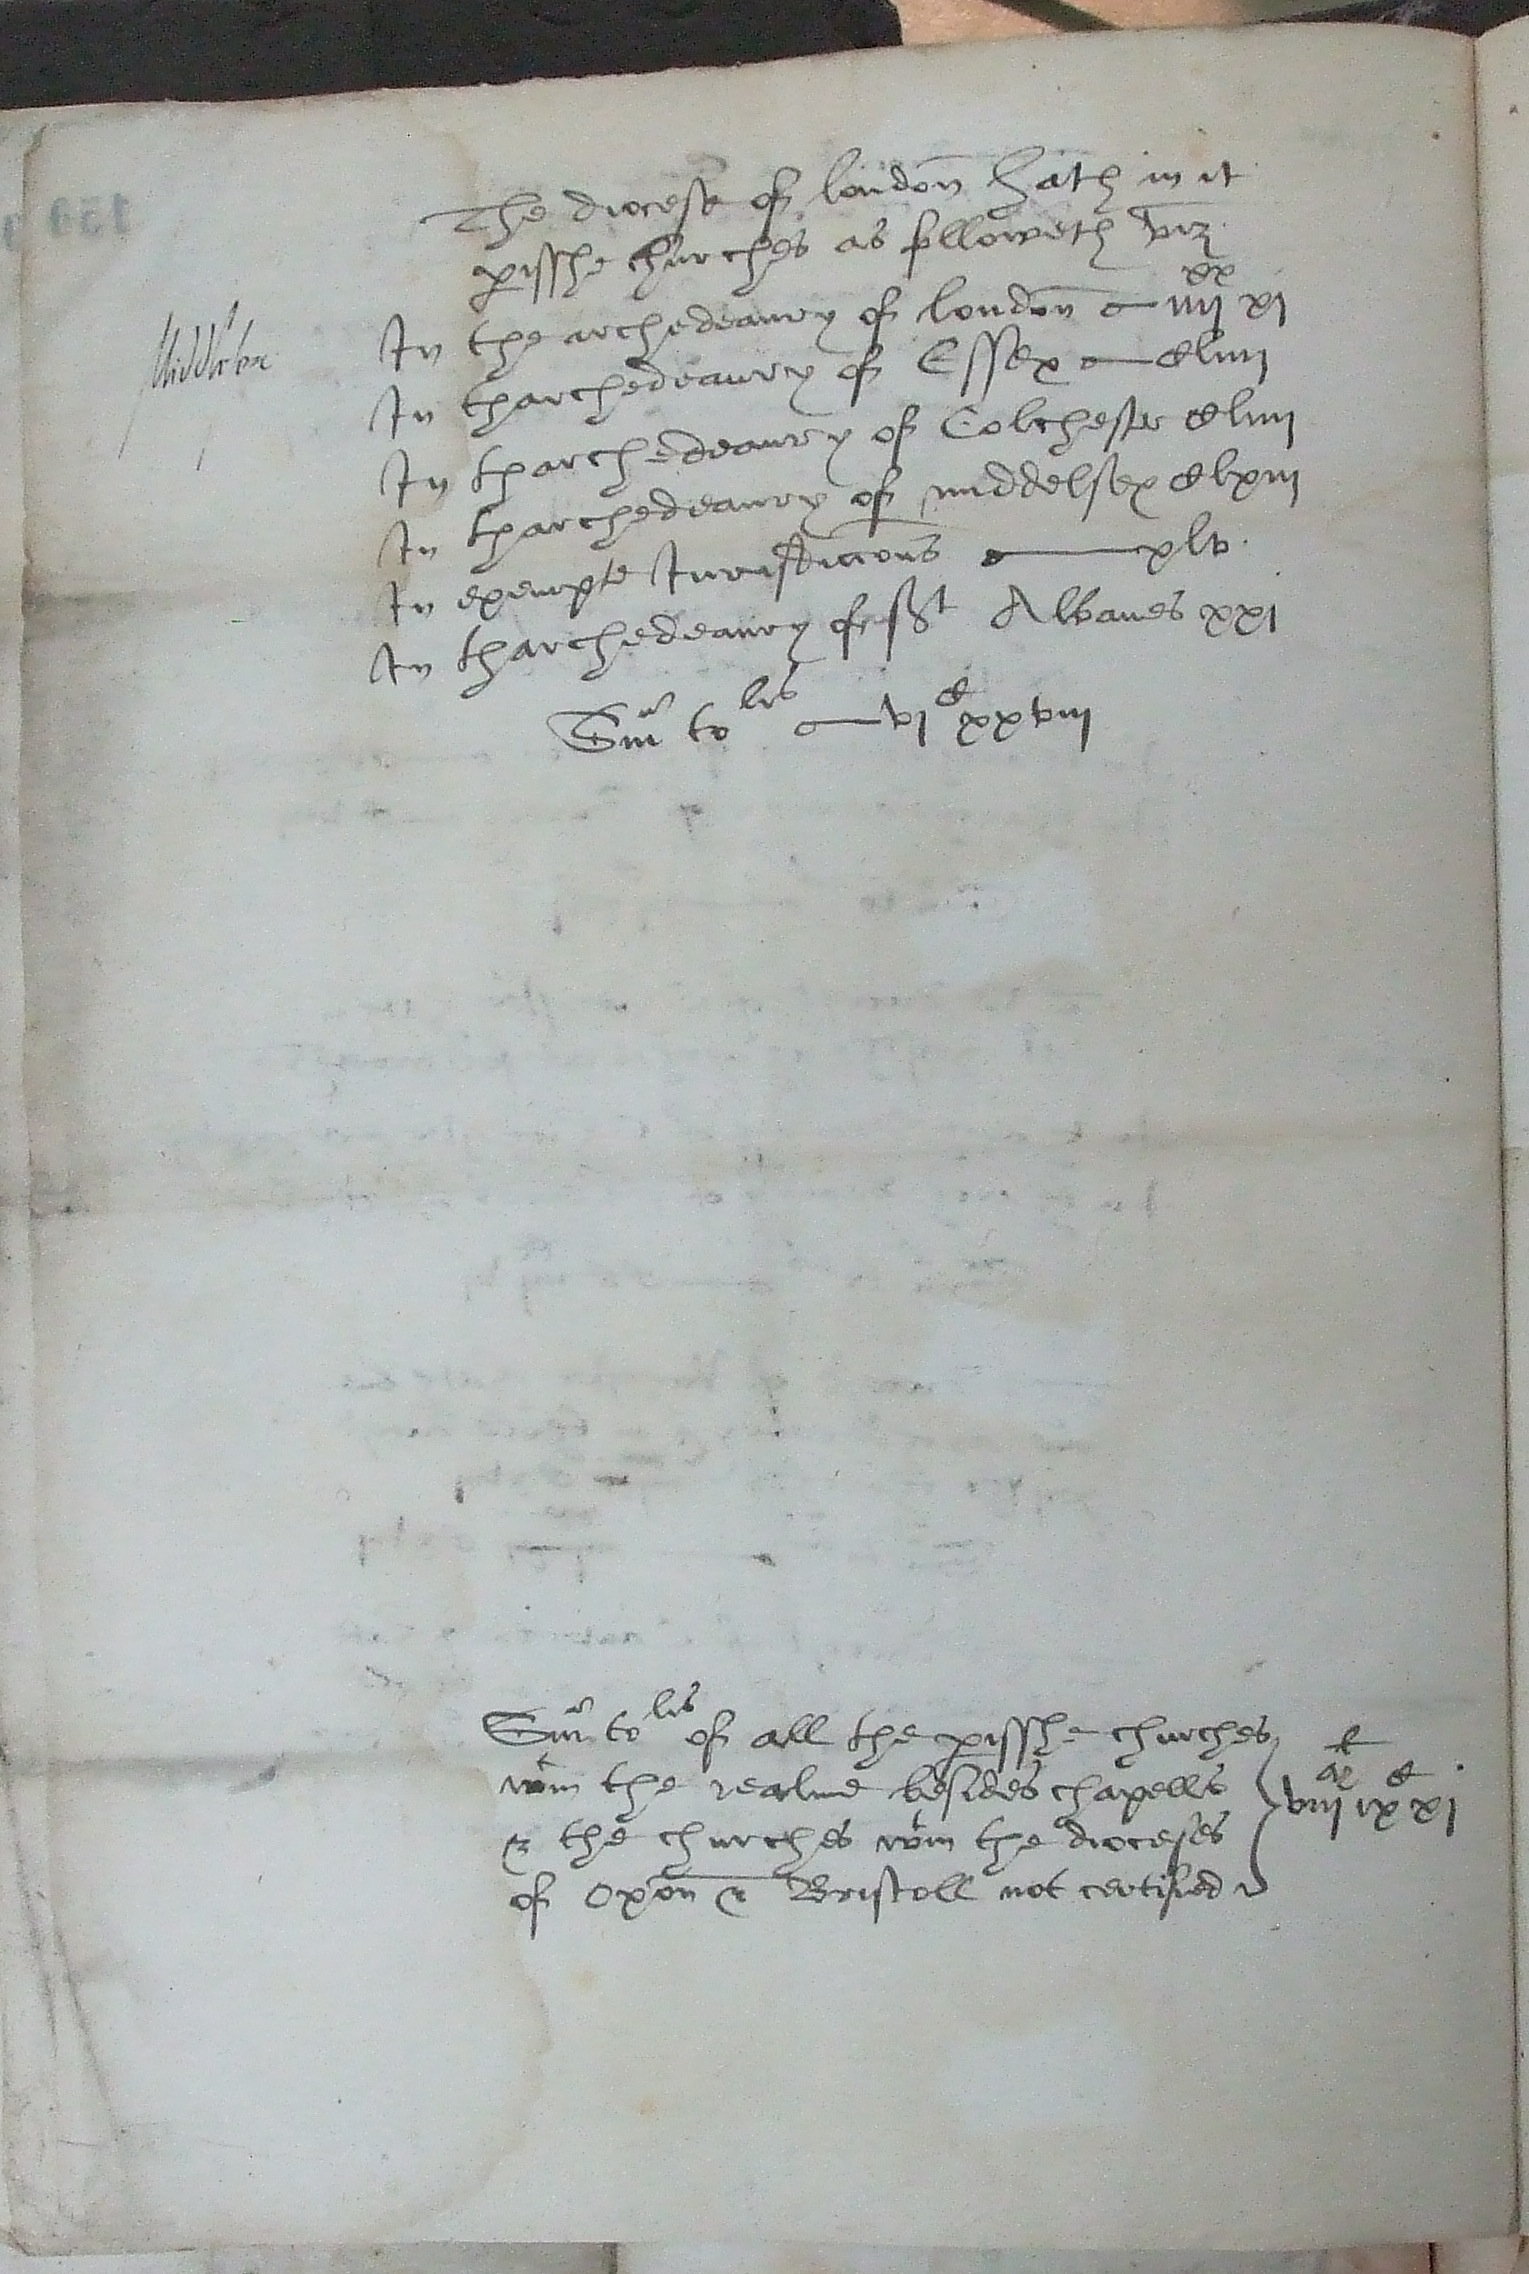 The diocese of londoñ hath in it
pisshe churches as followeth viz
In the archedeanry of londoñ — iiij^xx xj
In tharchedeanry of Essex — Cliiij
In tharchedeanry of Colchester Cliiij
In tharchedeanry of middelsex Clxiij
In exempte Jurisdiccons — xlv.
In tharchedeanry of S^t Albanes xxj
Sm^a to^lis — vj^C xxviij
Sm^a to^lis of all the pisshe churches
w^tin the realme besides chapells
& the churches w^tin the dioceses
of Oxon & Bristoll not certified
viij ix^C xj